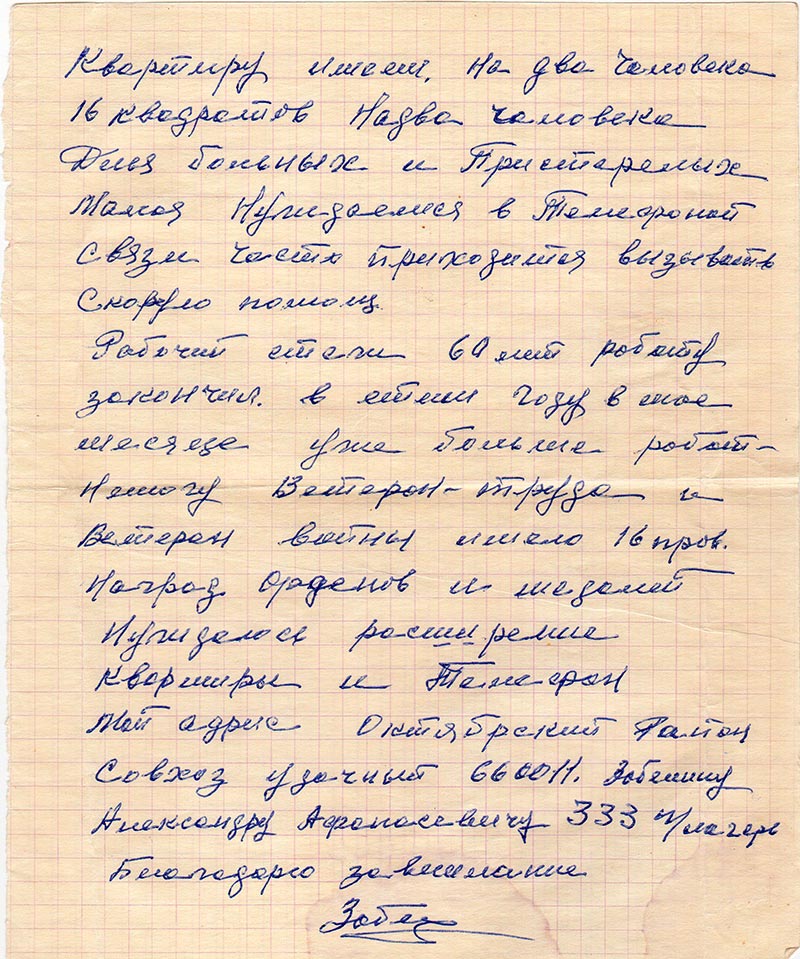 Квартиру имеем. На два человека
16 квадратов Надва человека
Для больных и Пристарелых
Малоя Нуждаемся в Телефоной
связи часто приходится вызывать
Скорую помощ
Рабочий стаж 60 лет работу
закончил. в этим году в мае
месяце уже больше работ-
Немогу Ветеран-труда и
Ветеран войны имею 16 прав.
Награз Орденов и медалей
Нуждаюсь расширение
Квартиры и Телефон
Мой адрис Октябрский Район
Совхоз удачный 660011. Зобенину
Александру Афонасевичу 333 п/лагерь
Благодарю завнимание